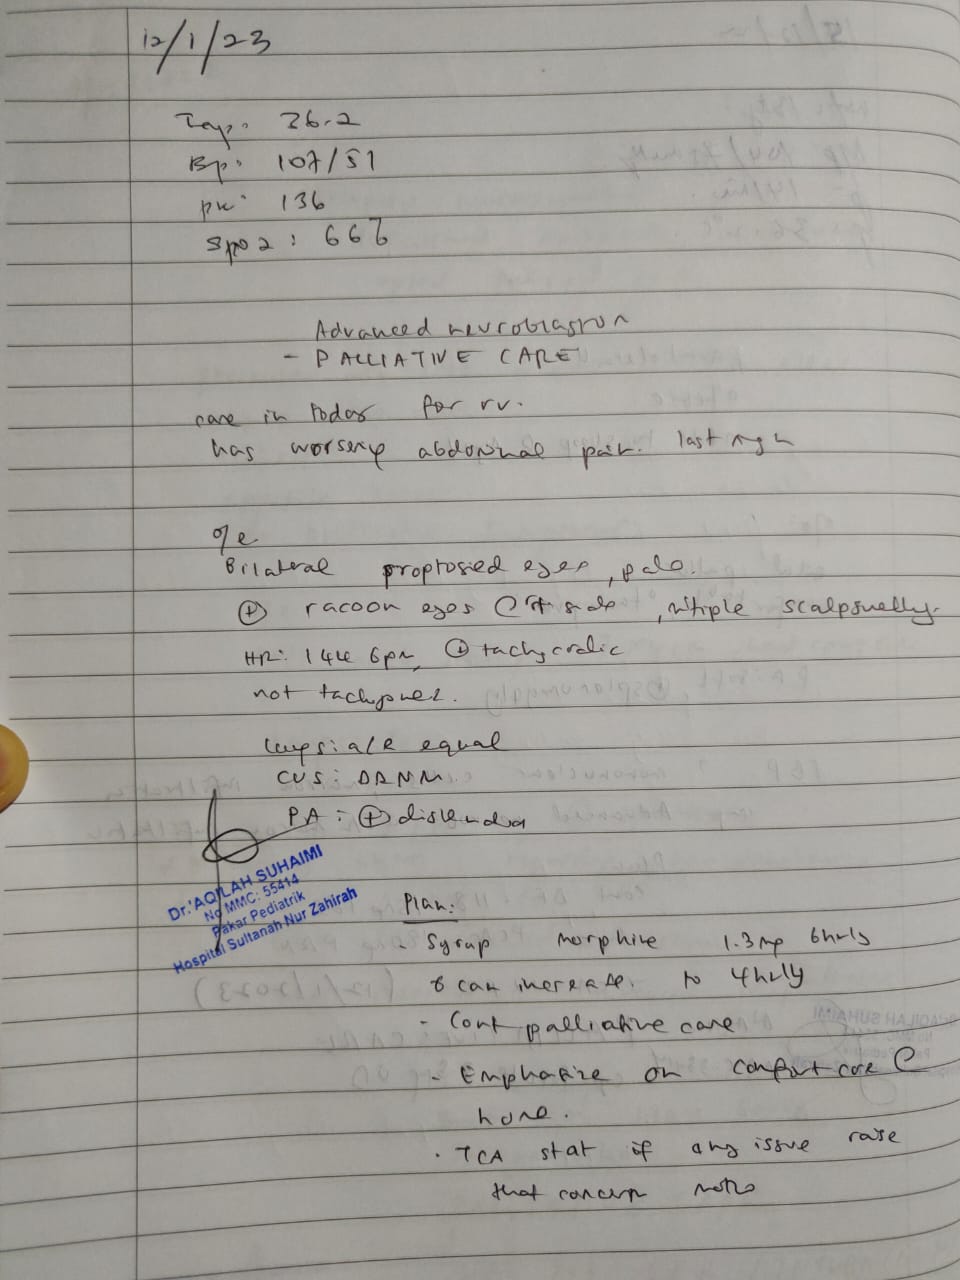 12/1/23
Temp: 36.2
Bp: 107/51
PR: 136
Spo2:
Advanced neuroblastom
- PALLIATIVE CARE
came in today for rv.
has worseng abdominal pain. last nigh
o/e
Bilateral proptosied eyes, pale.
⊕ racoon eyes side, multiple scalp swelly.
HR: 144 bpm, ⊕ tachycardic
not tachypneic.
Lungs: a/e equal
CVS: DRNM
PA: ⊕ distended
Dr. 'AQILAH SUHAIMI
No MMC: 55414
Pakar Pediatrik
Hospital Sultanah Nur Zahirah
Plan:
- Syrup morphine 1.3mg 6hrly
can increase to 4hrly
- Cont palliative care
- Emphasize on comfort care
home.
- TCA stat if any issue raise
that concern